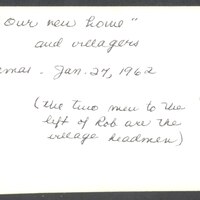 Our new home"
and villagers
Jan. 27, 1962
(the two men to the
left of Rob are the
village headmen)